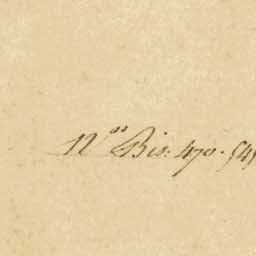 N.os Bis. 470. 545